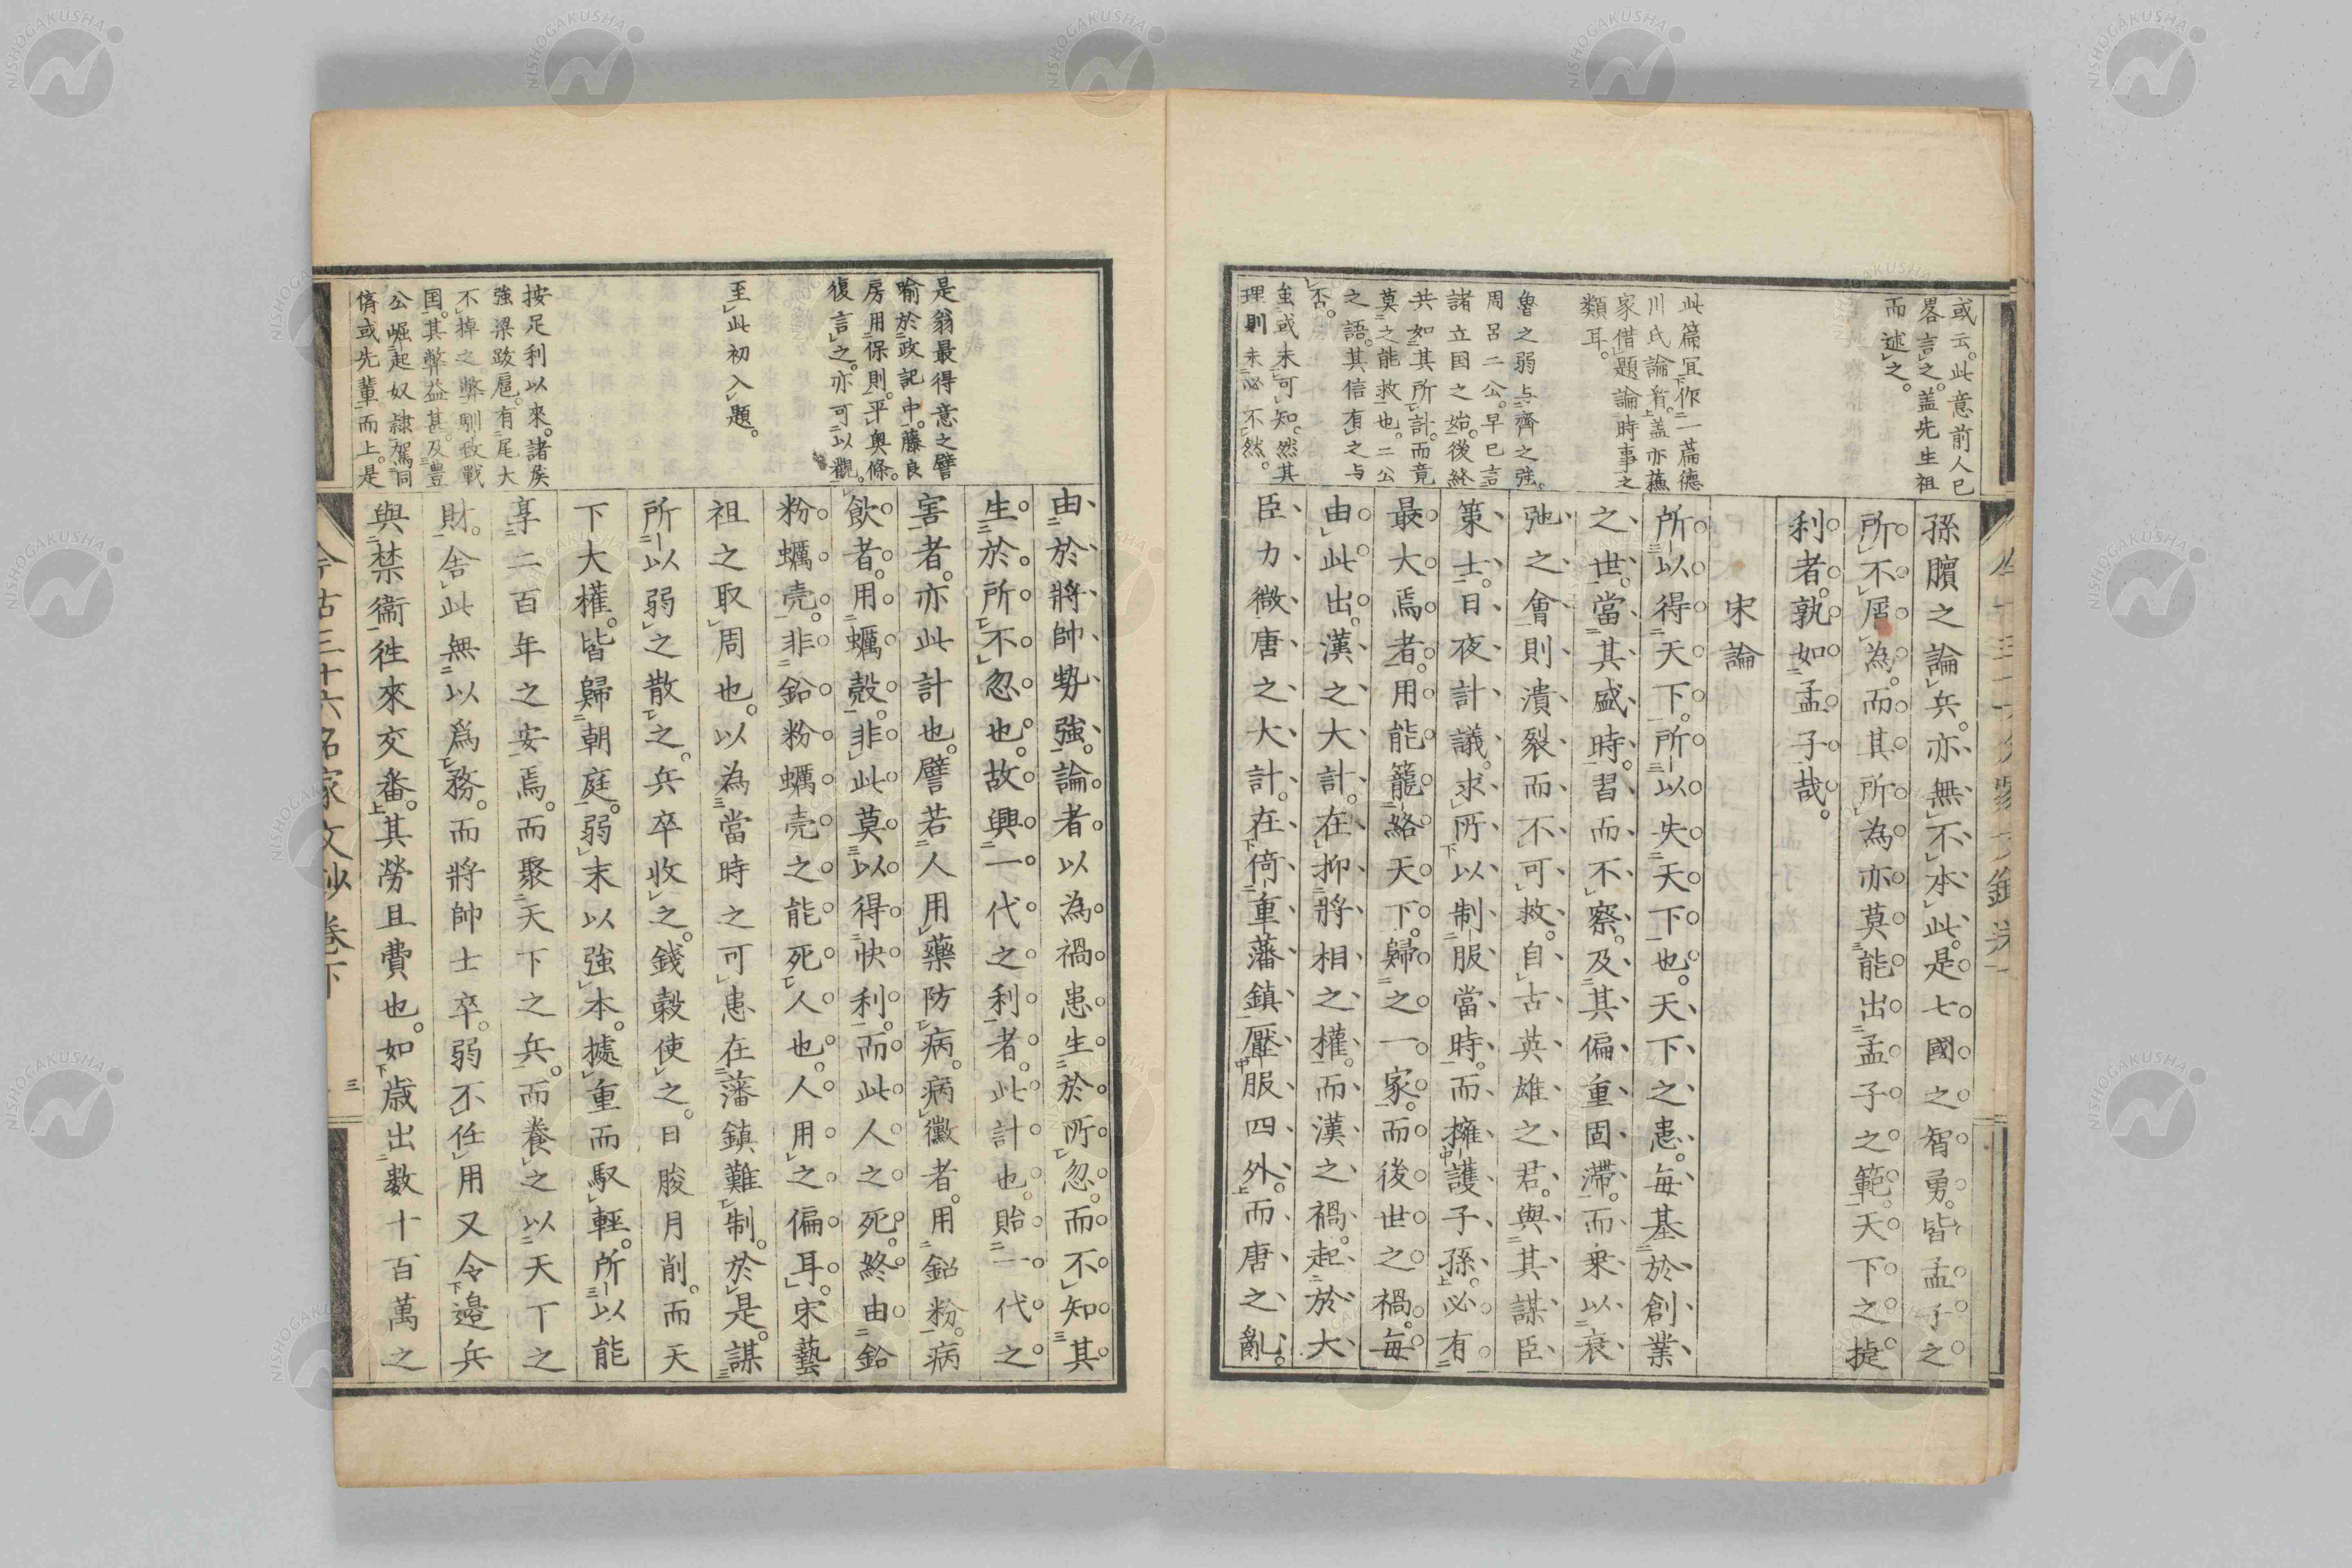 或云。此意前人已
畧言之。盖先生祖
而述之。
此篇宜作一篇德
川氏論看。盖亦蘓
家借題論時事之
類耳。
魯之弱与齊之強。
周呂二公。早已言
諸立国之始。後終
共如其所計。而竟
莫之能救也。二公
之語。其信有之与
否。
虽或未可知。然其
理則未必不然。
孫臏之論兵。亦無不本此。是七國之智勇。皆孟子之
所不屑為。而其所為亦莫能出孟子之範。天下之㨗
利者。孰如孟子哉。
宋論
所以得天下。所以失天下也。天下之患。每基於創業
之世。當其盛時。習而不察。及其偏重固滯。而乗以衰
弛之會。則潰裂而不可救。自古英雄之君。與其謀臣
策士。日夜計議。求所以制服當時。而擁護子孫。必有
最大焉者。用能籠絡天下。歸之一家。而後世之禍。每
由此出。漢之大計。在抑將相之權。而漢之禍。起於大
臣力微。唐之大計。在倚重藩鎮。壓服四外。而唐之亂。
是翁最得意之譬
喻。於政記中。藤良
房用保則。平奥條。
復言之。亦可以觀。
至此初入題。
按足利以來。諸矦
強梁跋扈。有尾大
不掉之弊。馴致戰
国。其弊益甚。及豊
公崛起奴隷。駕同
儕或先輩而上。是
由於將帥勢強。論者以為禍患生於所忽。而不知其
生於所不忽也。故興一代之利者。此計也。貽一代之
害者。亦此計也。譬若人用藥防病。病黴者。用鉛粉。病
飲者。用蠣殼。非此莫以得快利。而此人之死。終由鉛
粉蠣壳。非鉛粉蠣壳之能死人也。人用之偏耳。宋藝
祖之取周也。以為當時之可患在藩鎮難制。於是謀
所以弱之散之。兵卒收之。錢榖使之。日朘月削。而天
下大權。皆歸朝庭。弱末以強本。據重而馭輕。所以能
享二百年之安焉。而聚天下之兵。而養之以天下之
財。舎此無以爲務。而將帥士卒。弱不任用又令邉兵
與禁衞徃來交畨。其勞且費也。如歳出数十百萬之
今古三十六名家文抄卷下
三